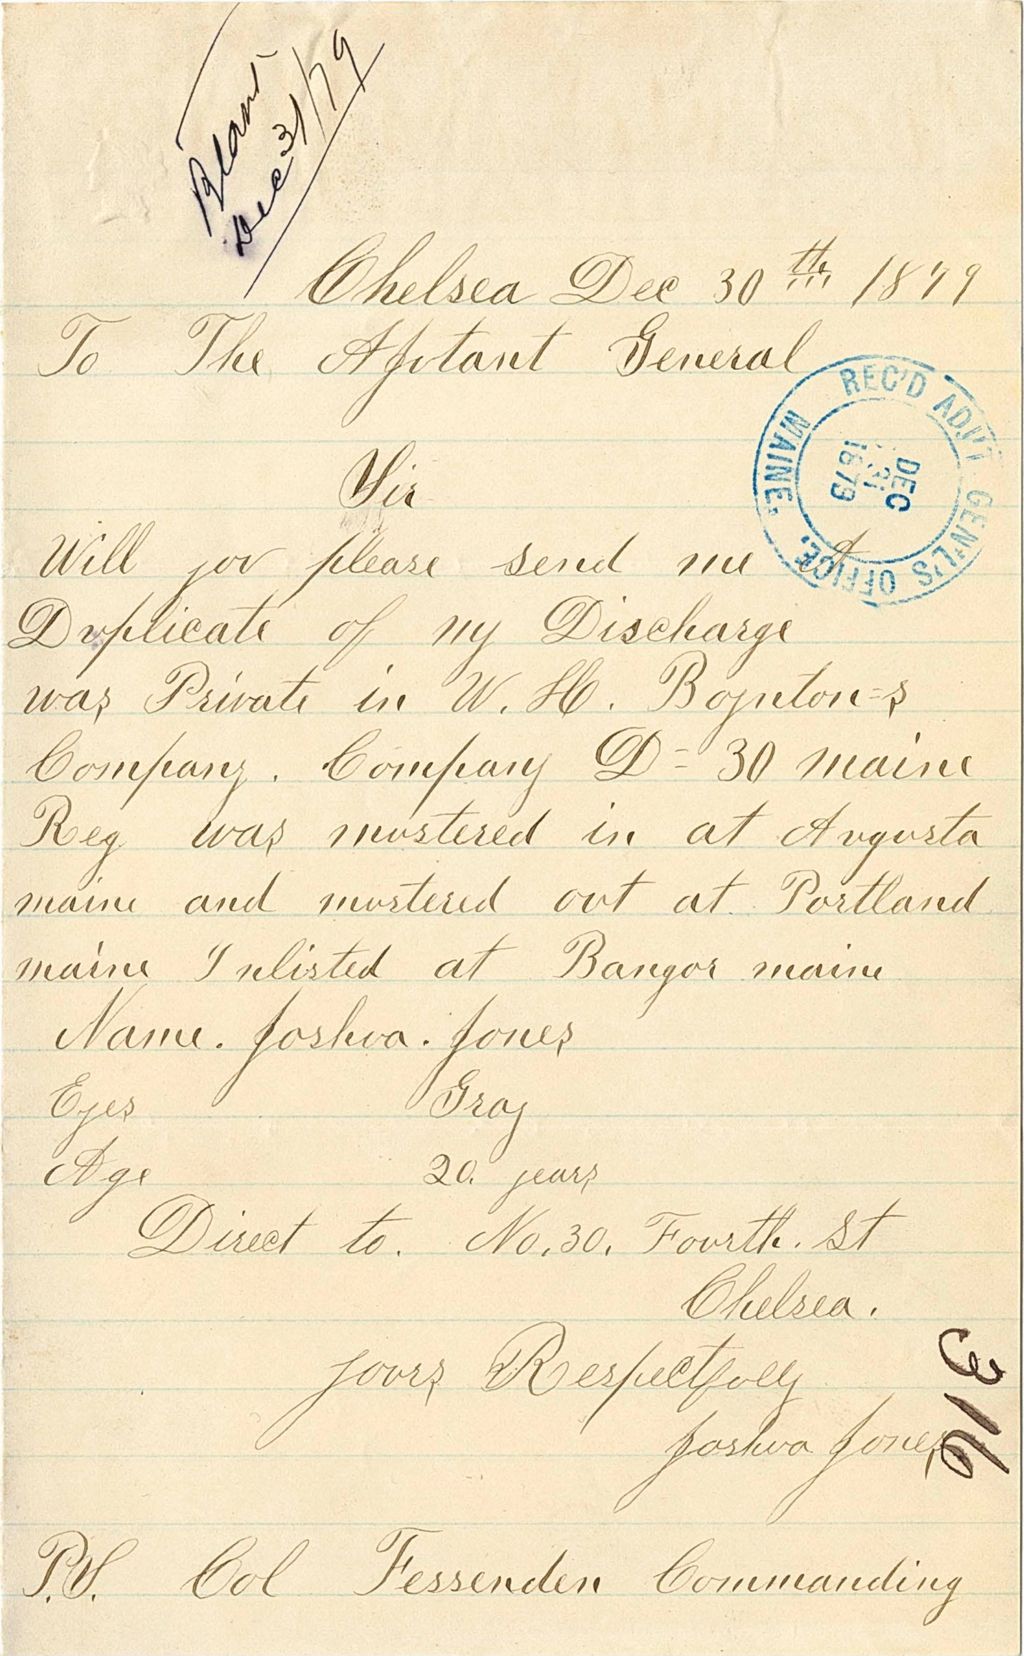 Blank
Dec 31/79
Chelsea Dec 30th 1879
To The Ajutant General
REC'D ADJ'T GEN'L'S OFFICE, MAINE.
DEC
31
1879
Sir
Will you please send me A
Duplicate of my Discharge
was Private in W. H. Boynton=s
Company. Company D= 30 maine
Reg was mustered in at Augusta
maine and mustered out at Portland
maine Inlisted at Bangor maine
Name. Joshua. Jones
Eyes Gray
Age 20. years
Direct to. No. 30. Fourth. St
Chelsea.
yours Respectfuly
Joshua Jones
316
P.S. Col Fessenden Commanding